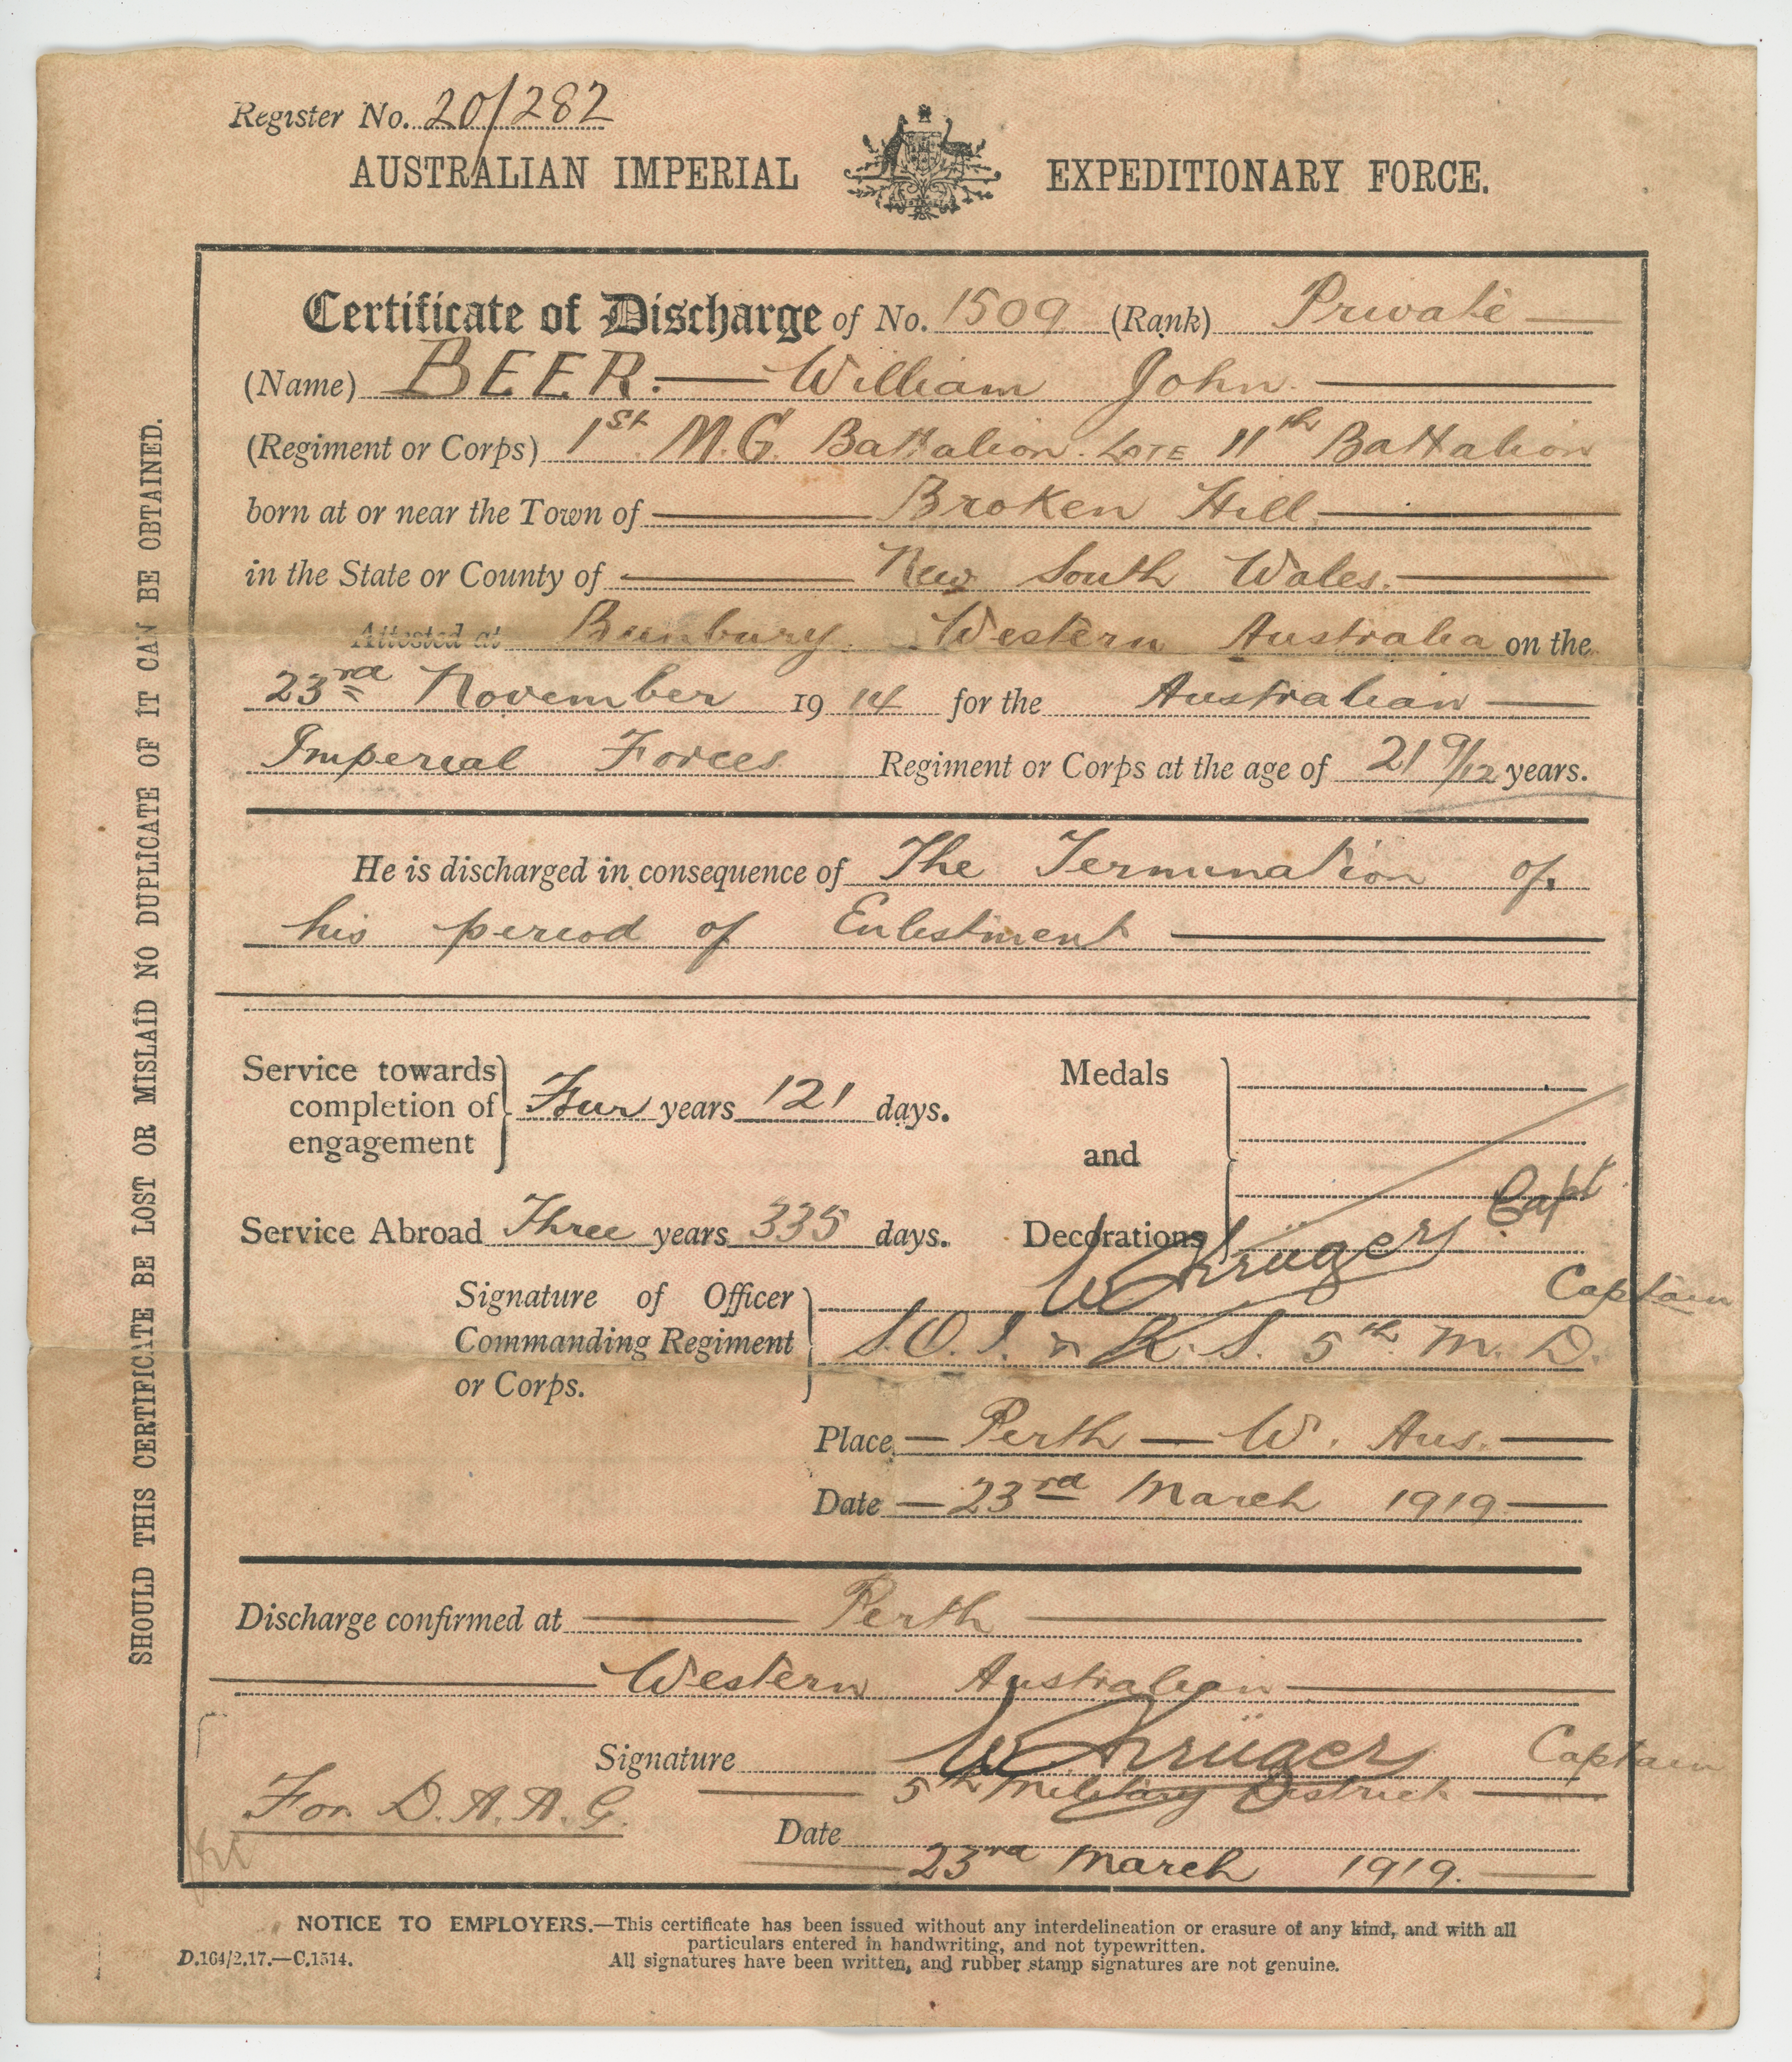 Register No. 20/282
AUSTRALIAN IMPERIAL EXPEDITIONARY FORCE.
Certificate of Discharge of No. 1509 (Rank) Private
(Name) BEER. William John.
(Regiment or Corps) 1st M.G. Battalion. LATE 11th Battalion
born at or near the Town of Broken Hill.
in the State or County of New South Wales.
Attested at Bunbury. Western Australia on the
23rd November 1914 for the Australian
Imperial Forces Regiment or Corps at the age of 21 9/12 years.
He is discharged in consequence of The Termination of
his period of Enlistment
Service towards completion of engagement Four years 121 days.
Service Abroad Three years 335 days.
Medals and Decorations
W Krüger Capt
Captain
Signature of Officer Commanding Regiment or Corps.
S.O. I. & R.S. 5th M. D.
Place Perth W. Aus.
Date 23rd March 1919
Discharge confirmed at Perth
Western Australian
Signature W Krüger Captain
5th Military District
For D.A.A.G.
Date 23rd March 1919.
NOTICE TO EMPLOYERS.—This certificate has been issued without any interdelineation or erasure of any kind, and with all
particulars entered in handwriting, and not typewritten.
D.164/2.17.—C.1514.
All signatures have been written, and rubber stamp signatures are not genuine.
SHOULD THIS CERTIFICATE BE LOST OR MISLAID NO DUPLICATE OF IT CAN BE OBTAINED.